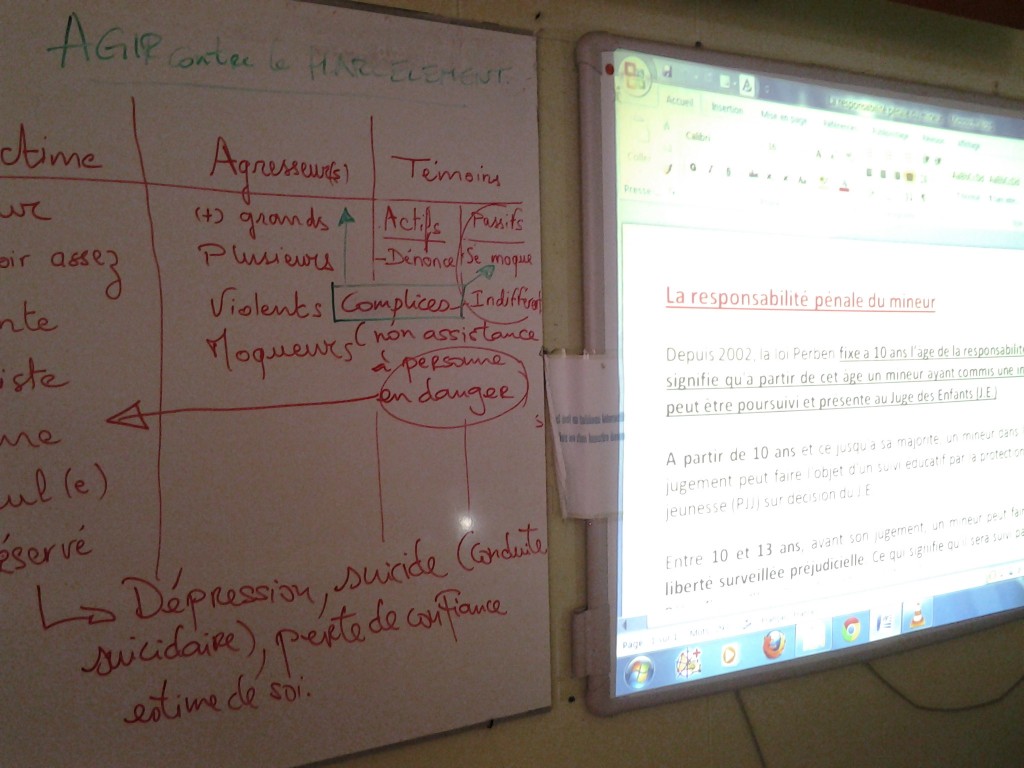 AGIR contre le HARCELEMENT
ctime
ur
oir assez
nte
iste
me
ul(e)
éservé
Agresseur(s)
(+) grands
Plusieurs
Violents
Moqueurs
Témoins
Actifs
-Dénonce
Passifs
Se moque
Indifférent
Complices
(non assistance
à personne
en danger
Dépression, suicide (conduite
suicidaire), perte de confiance
estime de soi.
Accueil Insertion Mise en page Références Publipostage Révision Affichage
Calibri
La responsabilité pénale du mineur
Depuis 2002, la loi Perben fixe a 10 ans l'age de la responsabilité
signifie qu'a partir de cet age un mineur ayant commis une in
peut être poursuivi et presente au Juge des Enfants (J.E.)
A partir de 10 ans et ce jusqu'a sa majorite, un mineur dans
jugement peut faire l'objet d'un suivi educatif par la protection
jeunesse (PJJ) sur decision du J.E.
Entre 10 et 13 ans, avant son jugement, un mineur peut fai
liberté surveillée préjudicielle. Ce qui signifie qu'il sera suivi pa